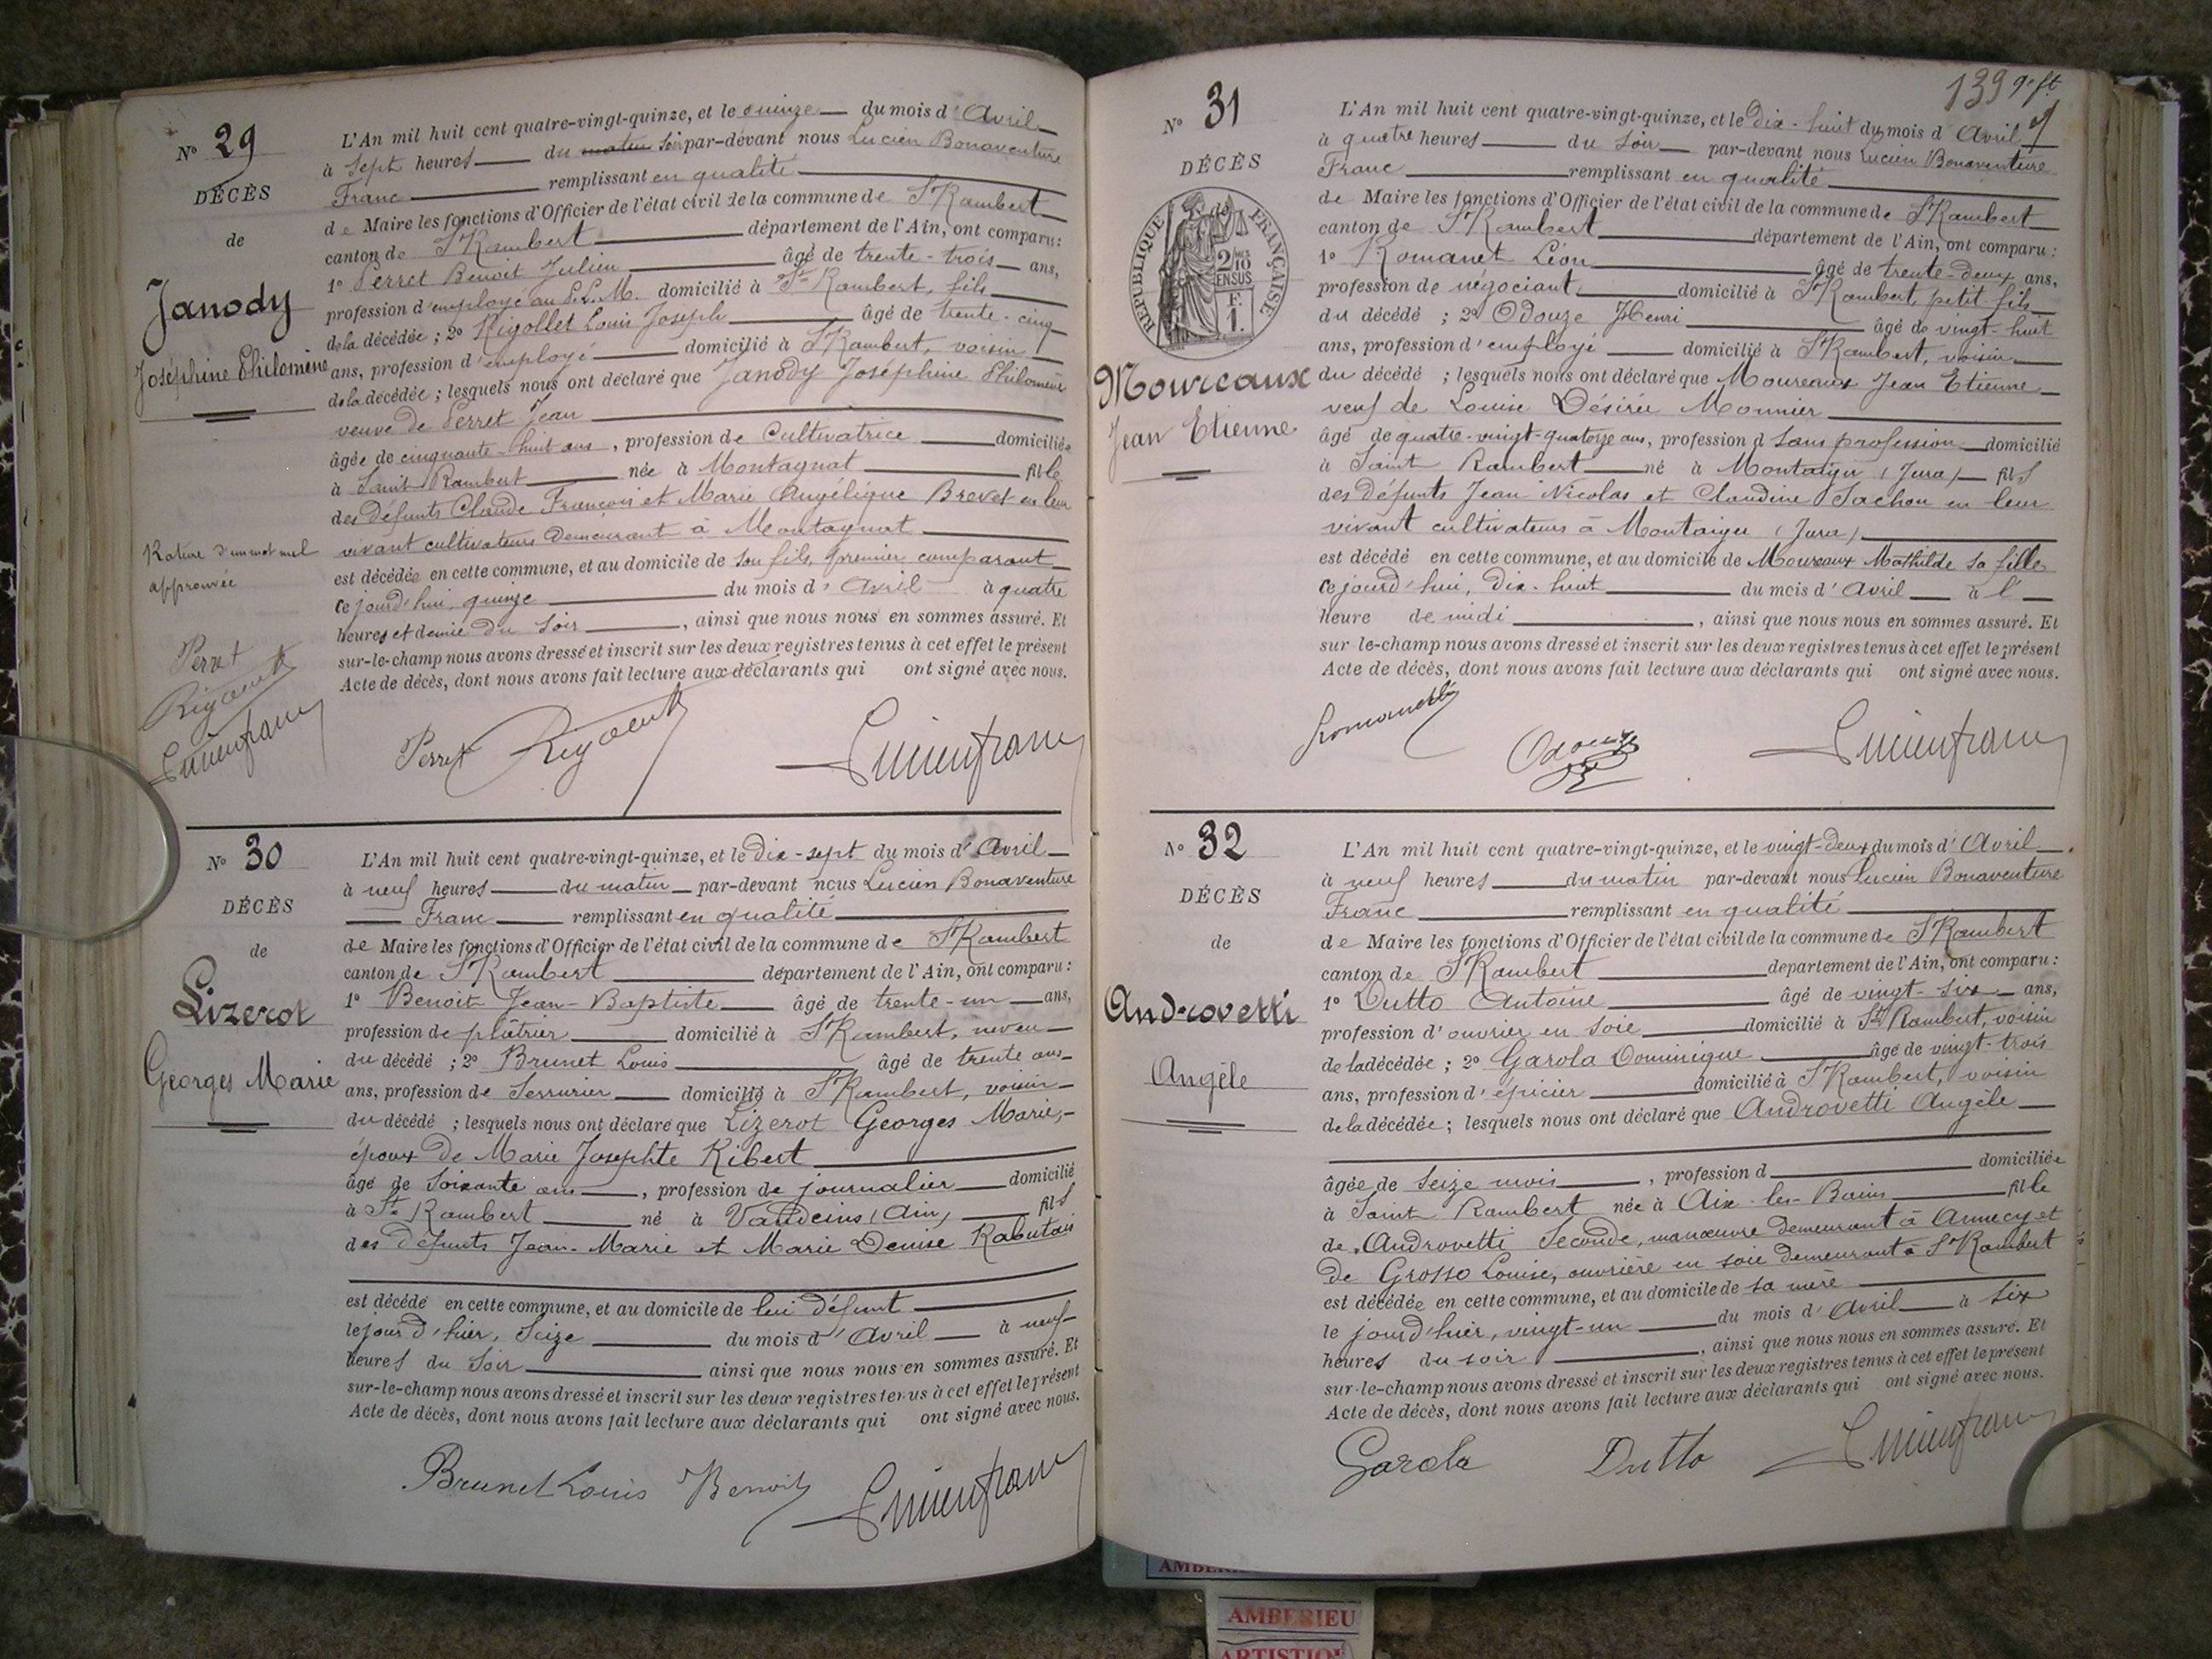 N° 29
DÉCÈS
de
Janody
Joséphine Philomène
L'An mil huit cent quatre-vingt-quinze, et le quinze du mois d'Avril
à sept heures du matin soir par-devant nous Lucien Bonaventure
Franc remplissant en qualité
de Maire les fonctions d'Officier de l'état civil de la commune de St Rambert
canton de St Rambert département de l'Ain, ont comparu:
1° Perret Benoit Julien âgé de trente-trois ans,
profession d'employé au P.L.M. domicilié à St Rambert, fils
de la décédée; 2° Rigollet Louis Joseph âgé de trente-cinq
ans, profession d'employé domicilié à St Rambert, voisin
de la décédée; lesquels nous ont déclaré que Janody Joséphine Philomène
veuve de Perret Jean
âgée de cinquante-huit ans, profession de Cultivatrice domiciliée
à Saint Rambert née à Montagnat fille
des défunts Claude François et Marie Angélique Brevet en leur
vivant cultivateurs demeurant à Montagnat
est décédée en cette commune, et au domicile de son fils, premier comparant
ce jourd'hui, quinze du mois d'Avril à quatre
heures et demie du soir, ainsi que nous nous en sommes assuré. Et
sur-le-champ nous avons dressé et inscrit sur les deux registres tenus à cet effet le présent
Acte de décès, dont nous avons fait lecture aux déclarants qui ont signé avec nous.
Rature d'un mot nul
approuvée
Perret
Lucien franc
Perret Lucien franc
N° 30
DÉCÈS
de
Lizerot
Georges Marie
L'An mil huit cent quatre-vingt-quinze, et le Dix-sept du mois d'Avril
à neuf heures du matin par-devant nous Lucien Bonaventure
Franc remplissant en qualité
de Maire les fonctions d'Officier de l'état civil de la commune de St Rambert
canton de St Rambert département de l'Ain, ont comparu:
1° Benoit Jean-Baptiste âgé de trente-un ans,
profession de plâtrier domicilié à St Rambert, neveu
du décédé; 2° Brunet Louis âgé de trente ans
ans, profession de Serrurier domicilié à St Rambert, voisin
du décédé; lesquels nous ont déclaré que Lizerot Georges Marie,
époux de Marie Josephte Ribert
âgé de soixante ans, profession de journalier domicilié
à St Rambert né à Vandeins (Ain) fils
des défunts Jean-Marie et Marie Denise Rabutais
est décédé en cette commune, et au domicile de lui défunt
le jour d'hier, Seize du mois d'Avril à neuf
heures du soir ainsi que nous nous en sommes assuré. Et
sur-le-champ nous avons dressé et inscrit sur les deux registres tenus à cet effet le présent
Acte de décès, dont nous avons fait lecture aux déclarants qui ont signé avec nous.
Brunet Louis Benoit Lucien franc
139
N° 31
DÉCÈS
de
RÉPUBLIQUE FRANÇAISE
2/10 EN SUS
F. 1.
Moureaux
Jean Etienne
L'An mil huit cent quatre-vingt-quinze, et le Dix-huit du mois d'Avril
à quatre heures du soir par-devant nous Lucien Bonaventure
Franc remplissant en qualité
de Maire les fonctions d'Officier de l'état civil de la commune de St Rambert
canton de St Rambert département de l'Ain, ont comparu:
1° Romanet Léon âgé de trente-deux ans,
profession de négociant domicilié à St Rambert, petit fils
du décédé; 2° Odouze Henri âgé de vingt-huit
ans, profession d'employé domicilié à St Rambert, voisin
du décédé; lesquels nous ont déclaré que Moureaux Jean Etienne
veuf de Louise Désirée Monnier
âgé de quatre-vingt-quatorze ans, profession d sans profession domicilié
à Saint Rambert né à Montaigu (Jura) fils
des défunts Jean Nicolas et Claudine Sachon en leur
vivant cultivateurs à Montaigu (Jura)
est décédé en cette commune, et au domicile de Moureaux Mathilde sa fille
ce jourd'hui, dix-huit du mois d'Avril à l'
heure de midi, ainsi que nous nous en sommes assuré. Et
sur-le-champ nous avons dressé et inscrit sur les deux registres tenus à cet effet le présent
Acte de décès, dont nous avons fait lecture aux déclarants qui ont signé avec nous.
Odouze Lucien franc
N° 32
DÉCÈS
de
Androvetti
Angèle
L'An mil huit cent quatre-vingt-quinze, et le vingt-deux du mois d'Avril
à neuf heures du matin par-devant nous Lucien Bonaventure
Franc remplissant en qualité
de Maire les fonctions d'Officier de l'état civil de la commune de St Rambert
canton de St Rambert département de l'Ain, ont comparu:
1° Dutto Antoine âgé de vingt-six ans,
profession d'ouvrier en soie domicilié à St Rambert, voisin
de la décédée; 2° Garola Dominique âgé de vingt-trois
ans, profession d'épicier domicilié à St Rambert, voisin
de la décédée; lesquels nous ont déclaré que Androvetti Angèle
âgée de seize mois, profession d domiciliée
à Saint Rambert née à Aix-les-Bains fille
de Androvetti Seconde, manœuvre demeurant à Annecy et
de Grosso Louise, ouvrière en soie demeurant à St Rambert
est décédée en cette commune, et au domicile de sa mère
le jourd'hier, vingt-un du mois d'Avril à six
heures du soir, ainsi que nous nous en sommes assuré. Et
sur-le-champ nous avons dressé et inscrit sur les deux registres tenus à cet effet le présent
Acte de décès, dont nous avons fait lecture aux déclarants qui ont signé avec nous.
Garola Dutto Lucien franc
AMBERIEU